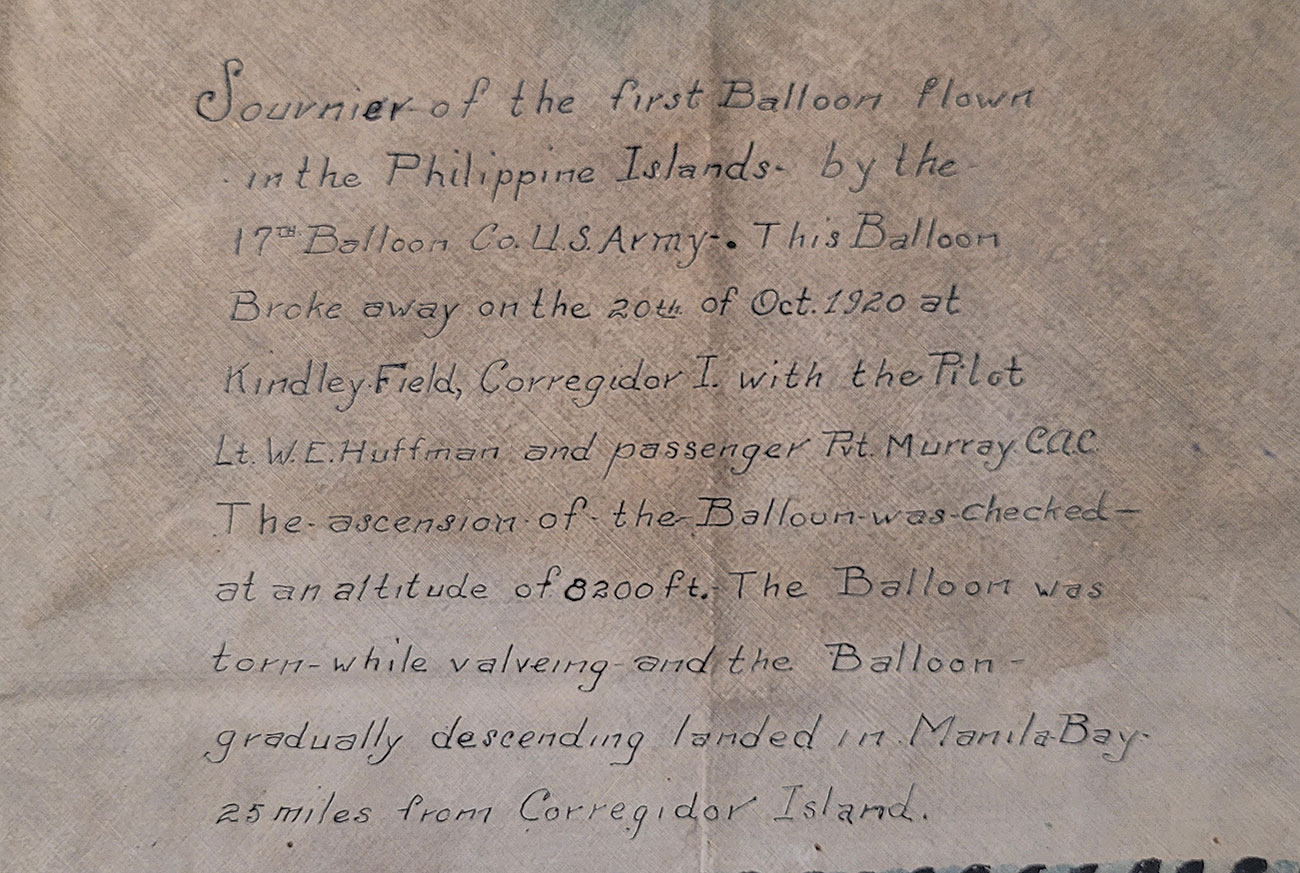 Sournier-of the first Balloon flown
in the Philippine Islands- by the
17TH Balloon Co. U.S. Army-. This Balloon
Broke away on the 20th. of Oct. 1920 at
Kindley Field, Corregidor I. with the Pilot
Lt. W.E. Huffman and passenger Pvt. Murray C.A.C.
The-ascension-of-the-Balloun-was-checked-
at an altitude of 8200 ft.-The Balloon was
torn-while valveing-and the Balloon-
gradually descending landed in Manila-Bay-
25 miles from Corregidor Island.